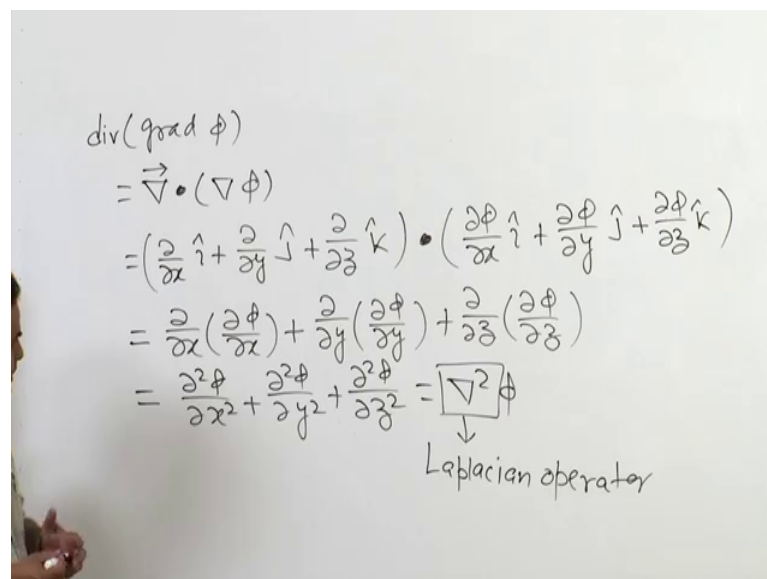 div(grad ϕ)
= ∇⃗ • (∇ ϕ)
= (∂/∂x î + ∂/∂y ĵ + ∂/∂z k̂) • (∂ϕ/∂x î + ∂ϕ/∂y ĵ + ∂ϕ/∂z k̂)
= ∂/∂x (∂ϕ/∂x) + ∂/∂y (∂ϕ/∂y) + ∂/∂z (∂ϕ/∂z)
= ∂²ϕ/∂x² + ∂²ϕ/∂y² + ∂²ϕ/∂z² = ∇² ϕ
↓
Laplacian operator